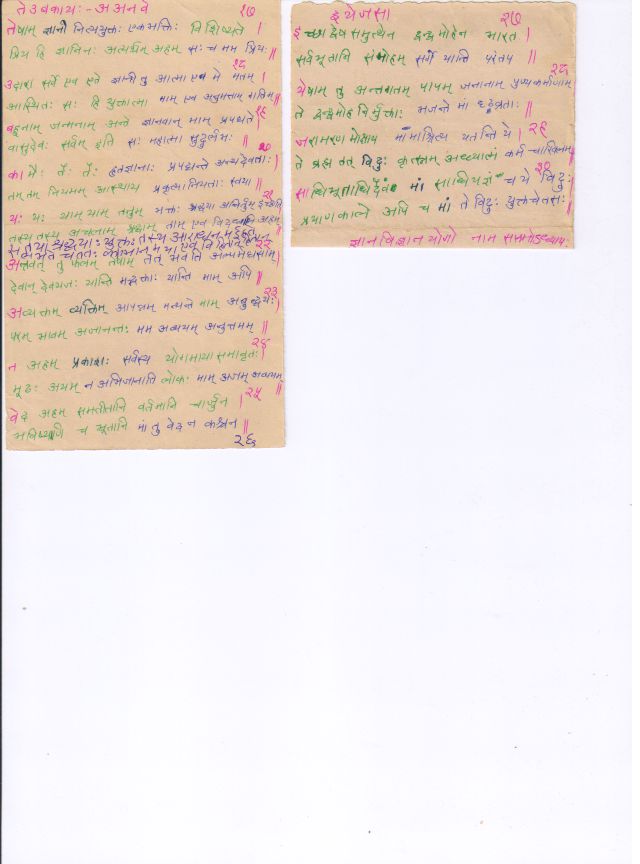 ते उ ब का यः - अ अ न वे
१७
तेषाम् ज्ञानी नित्ययुक्तः एकभक्तिः विशिष्यते ।
प्रिय हि ज्ञानिनः अत्यर्थम् अहम् सः च मम प्रियः ॥
१८
उदारा सर्वे एव एते ज्ञानी तु आत्मा एव मे मतम् ।
आस्थितः सः हि युक्तात्मा माम् एव अनुत्तमाम् गतिम् ॥
१९
बहूनाम् जन्मनाम् अन्ते ज्ञानवान् माम् प्रपद्यते
वासुदेवः सर्वम् इति सः महात्मा सुदुर्लभः ॥
२०
कामैः तैः तैः हृतज्ञानाः प्रपद्यन्ते अन्यदेवताः ।
तम् तम् नियमम् आस्थाय प्रकृत्या नियताः स्वया ॥
२१
यः यः याम् याम् तनुम् भक्तः श्रद्धया अर्चितुम् इच्छति
तस्य तस्य अचलाम् श्रद्धाम् ताम् एव विदधामि अहम्
स तया श्रद्धया युक्तः तस्य आराधनम् ईहते
लभते च ततः कामान् मया एव विहितान् हि तान्
२२
अन्तवत् तु फलम् तेषाम् तत् भवति अल्पमेधसाम् ।
देवान् देवयजः यान्ति मद्भक्ताः यान्ति माम् अपि ॥
२३
अव्यक्तम् व्यक्तिम् आपन्नम् मन्यन्ते माम् अबुद्धयः ।
परम् भावम् अजानन्तः मम अव्ययम् अनुत्तमम् ॥
२४
न अहम् प्रकाशः सर्वस्य योगमाया समावृतः ।
मूढः अयम् न अभिजानाति लोकः माम् अजम् अव्ययम् ॥
२५
वेद अहम् समतीतानि वर्तमानि चार्जुन ।
भविष्याणि च भूतानि मां तु वेद न कश्चन ॥
२६
इ ये ज सा
२७
इच्छा द्वेष समुत्थेन द्वन्द्वमोहेन भारत ।
सर्वभूतानि संमोहम् सर्गे यान्ति परंतप ॥
२८
येषाम् तु अन्तगतम् पापम् जनानाम् पुण्यकर्माणाम् ।
ते द्वन्द्वमोहनिर्मुक्ताः भजन्ते मां दृढव्रताः ॥
२९
जरामरण मोक्षाय मामाश्रित्य यतन्ति ये ।
ते ब्रह्म तत् विदुः कृत्स्नम् अध्यात्मं कर्म चाखिलम् ॥
३०
साधिभूताधिदैवं मां साधियज्ञं च ये विदुः ।
प्रयाणकाले अपि च मां ते विदुः युक्तचेतसः ॥
ज्ञानविज्ञानयोगो नाम सप्तमोऽध्यायः